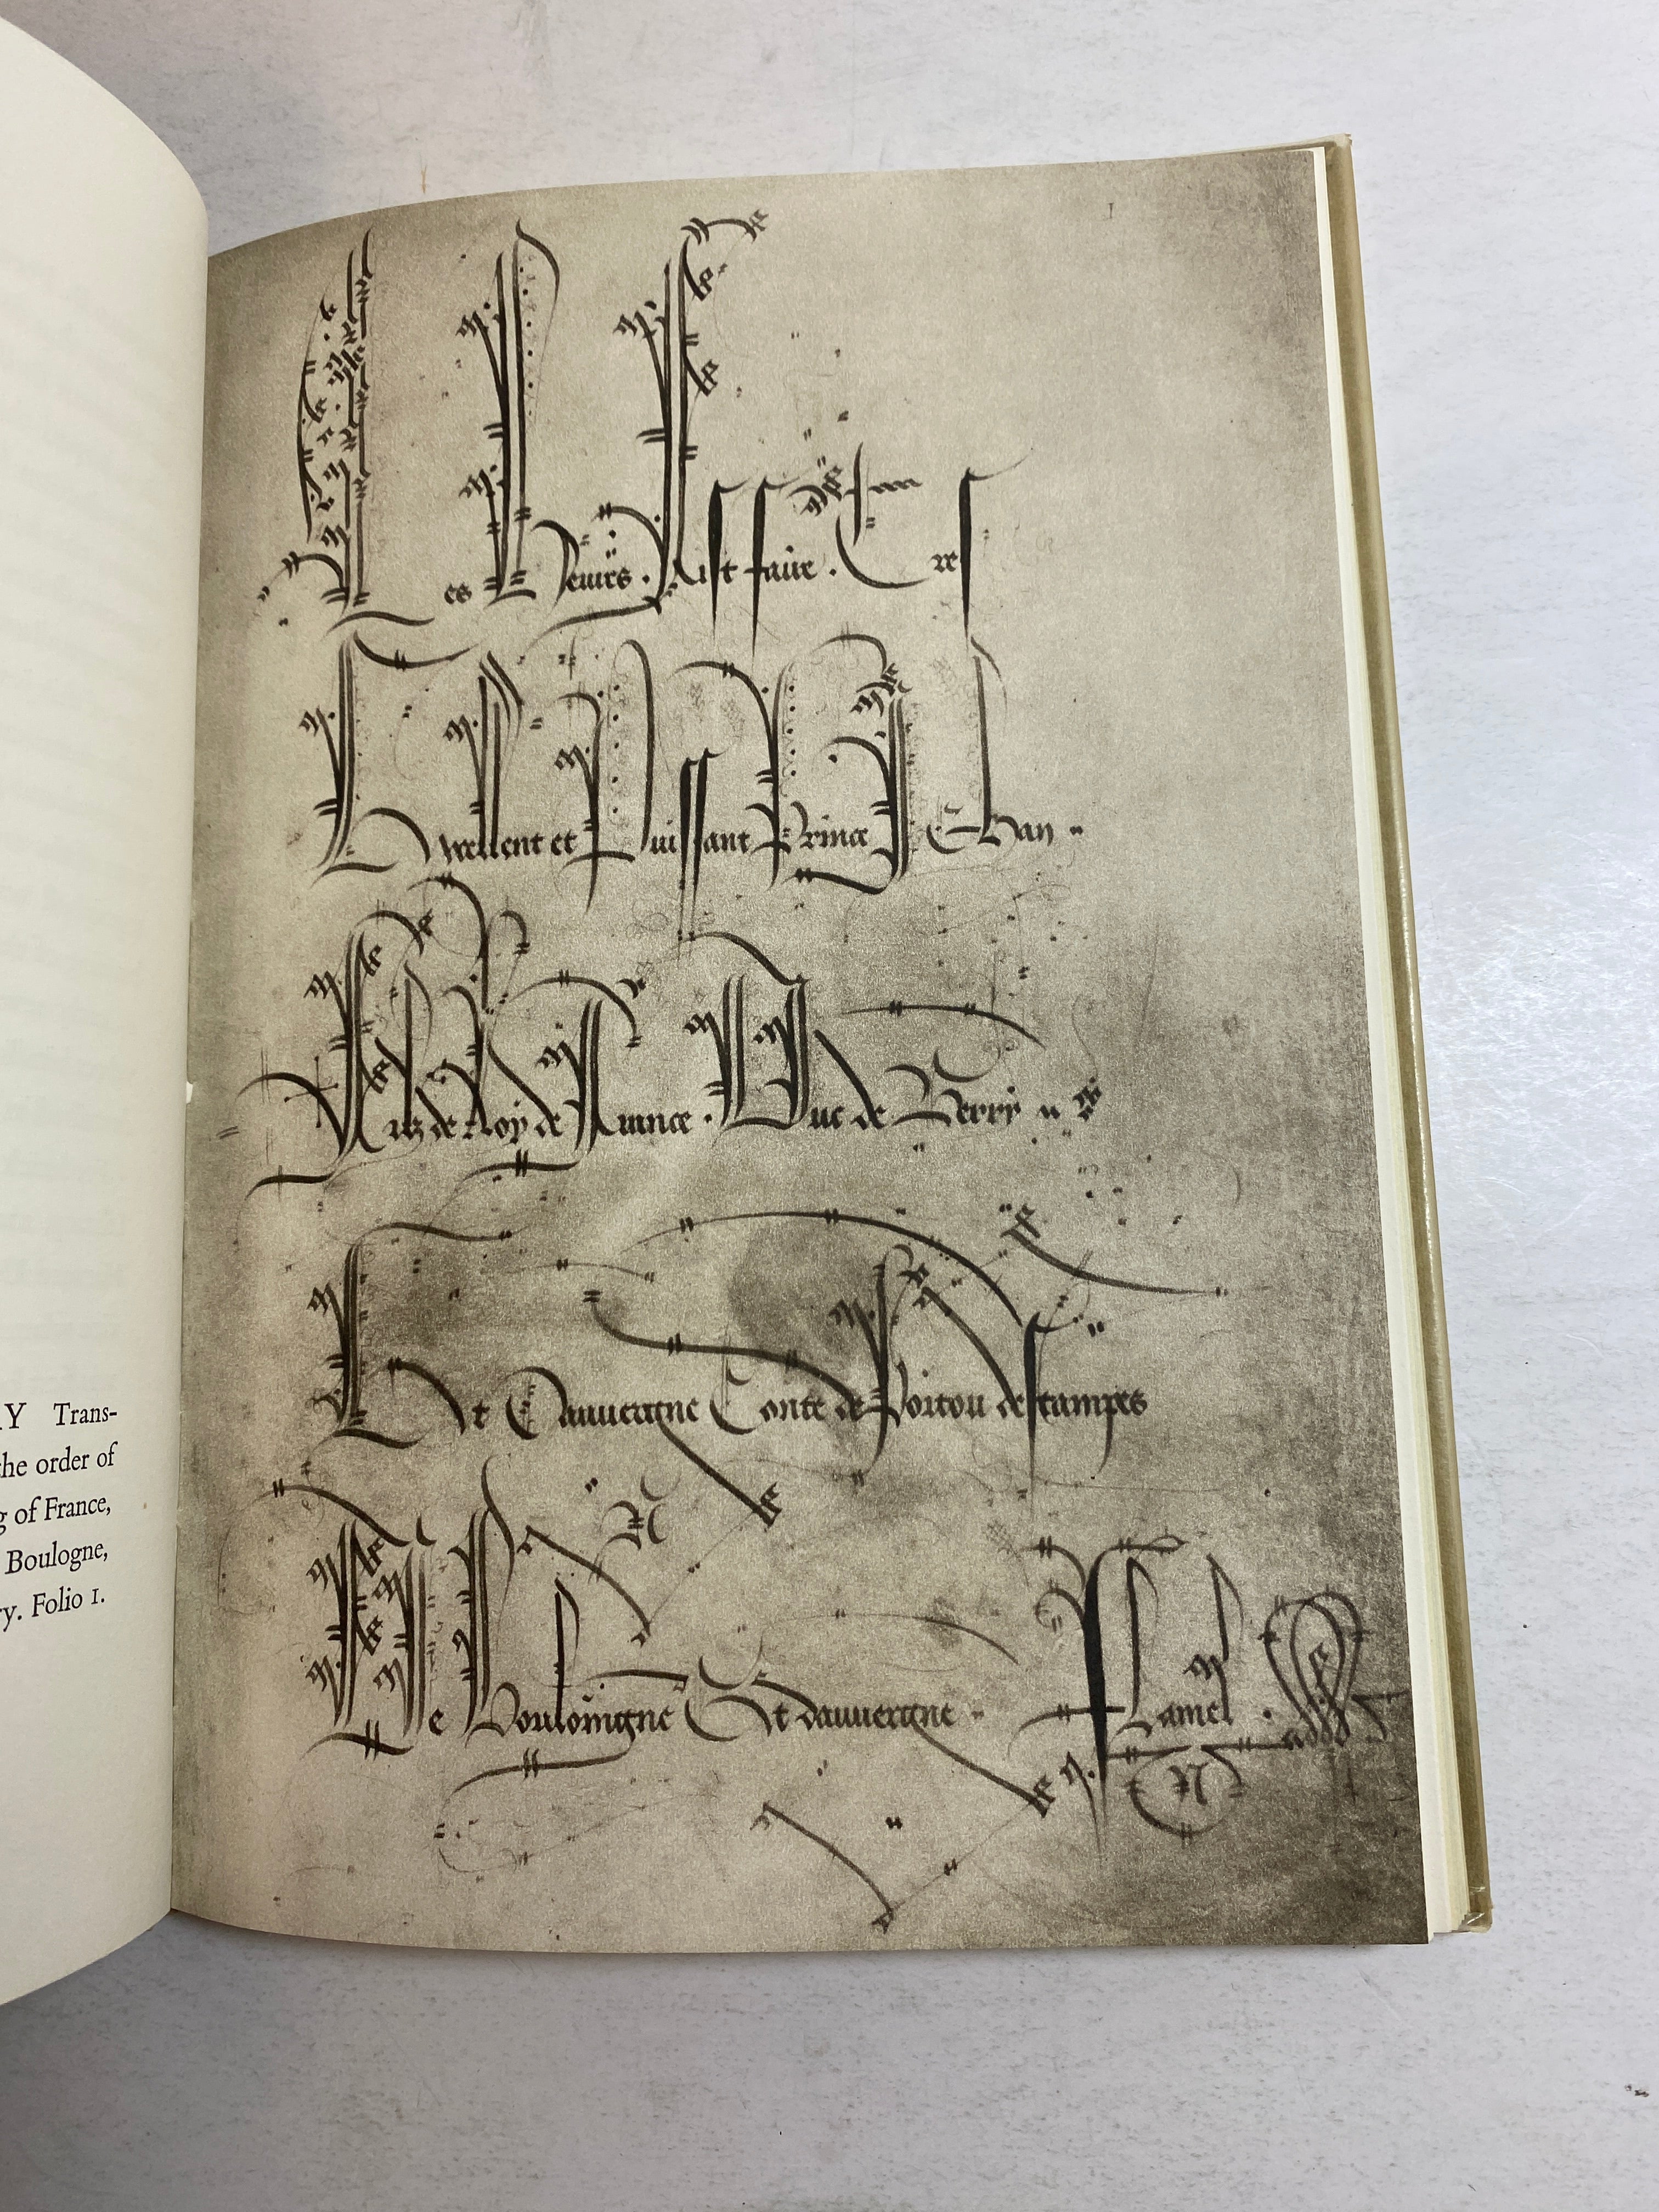 AY Trans-
the order of
g of France,
Boulogne,
ry. Folio 1.
1
Les Heures . fist faire . Tres
Excellent et Puissant Prince Jehan
Filz de Roy de France . Duc de Berry
Et Dauvergne Conte de Poitou destampes
De Bouloingne Et dauvergne Flamel .